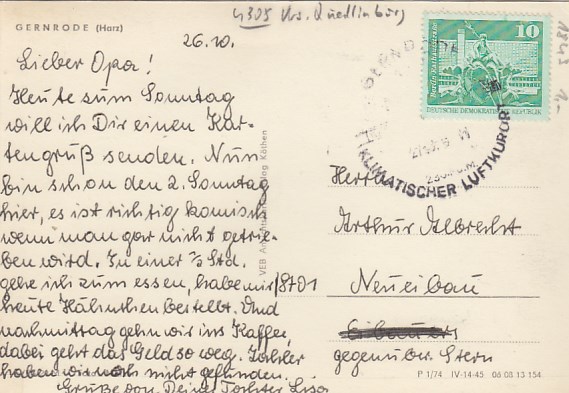 4305 Krs. Quedlinburg
GERNRODE (Harz)
26.10.
Lieber Opa!
Heute zum Sonntag
will ich Dir einen Kar-
tengruß senden. Nun
bin schon den 2. Sonntag
hier, es ist richtig komisch
wenn man gar nicht getrie-
ben wird. In einer ½ Std.
gehe ich zum essen, habe mir
heute Hähnchen bestellt. Und
nachmittag gehn wir ins Kaffee,
dabei geht das Geld so weg.
haben wir noch nicht gefunden.
Grüße von Deiner Tochter
VEB Köthen
10
DEUTSCHE DEMOKRATISCHE REPUBLIK
GERNRODE
KLIMATISCHER LUFTKURORT
Herrn
Arthur Albrecht
8701 Neueibau
gegenüber Stern
P 1/74 IV-14-45 06 08 13 154